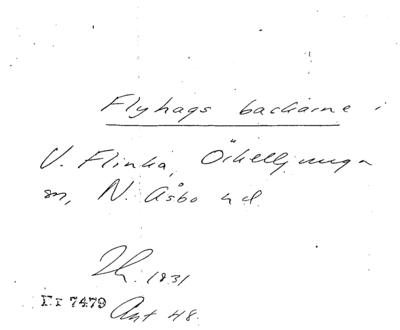 Flyhags backarne i
V. Flinka, Örkelljunga
sn, N. Åsbo hd
1931
7479 Ant 48